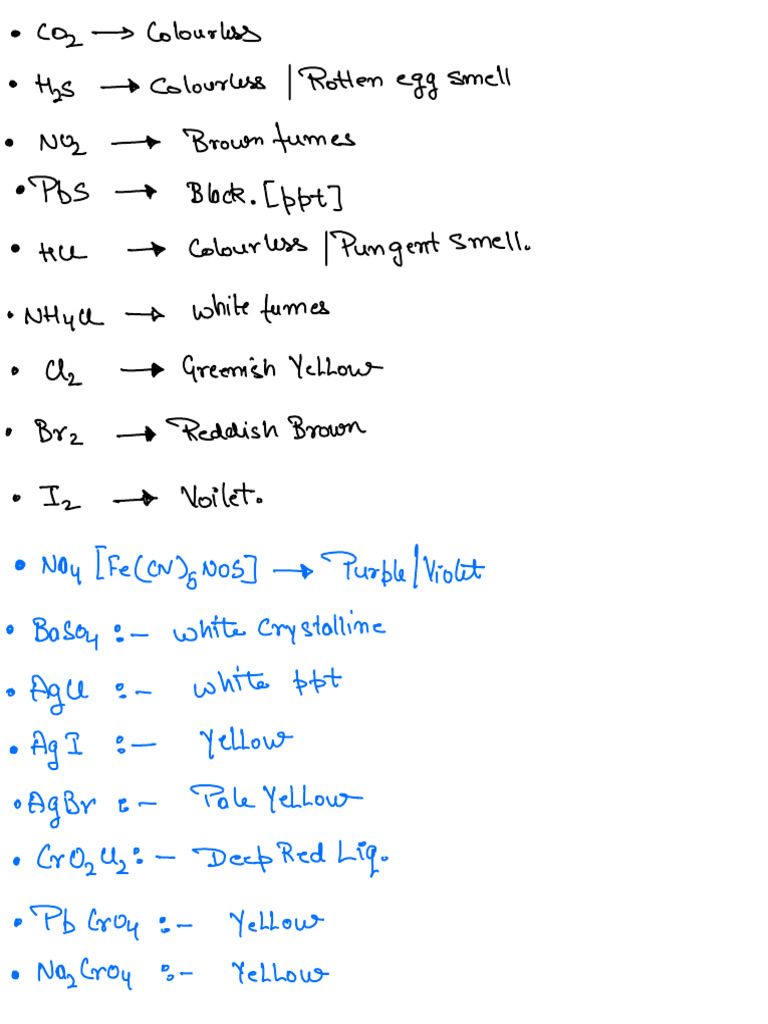 • CO2 → Colourless
• H2S → Colourless | Rotten egg smell
• NO2 → Brown fumes
• PbS → Black. [ppt]
• HCl → Colourless | Pungent Smell.
• NH4Cl → White fumes
• Cl2 → Greenish Yellow
• Br2 → Reddish Brown
• I2 → Voilet.
• Na4 [Fe(CN)5NOS] → Purple/Violet
• BaSO4 :- White Crystalline
• AgCl :- White ppt
• AgI :- Yellow
• AgBr :- Pale Yellow
• CrO2Cl2 :- Deep Red Liq.
• PbCrO4 :- Yellow
• Na2CrO4 :- Yellow